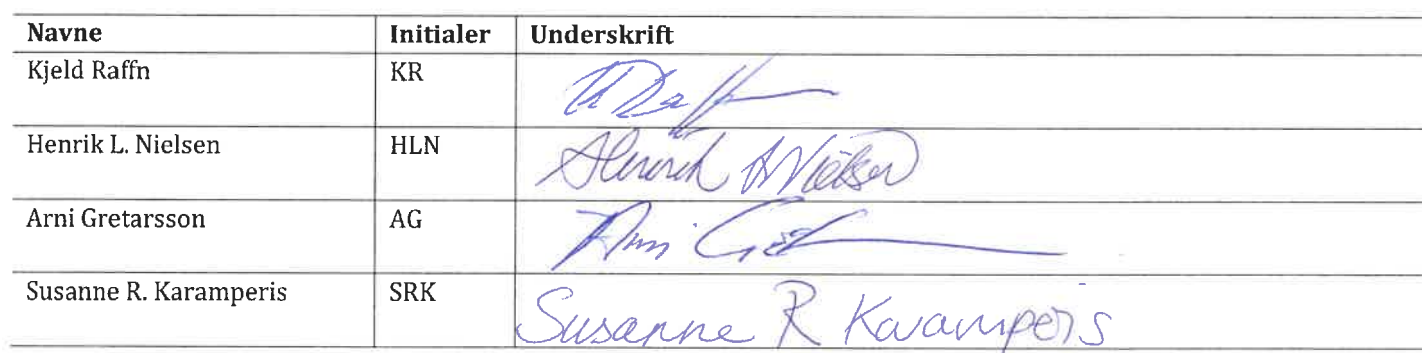 Navne Initialer Underskrift
Kjeld Raffn KR
Henrik L. Nielsen HLN Henrik Nielsen
Arni Gretarsson AG Arni
Susanne R. Karamperis SRK Susanne R Karamperis